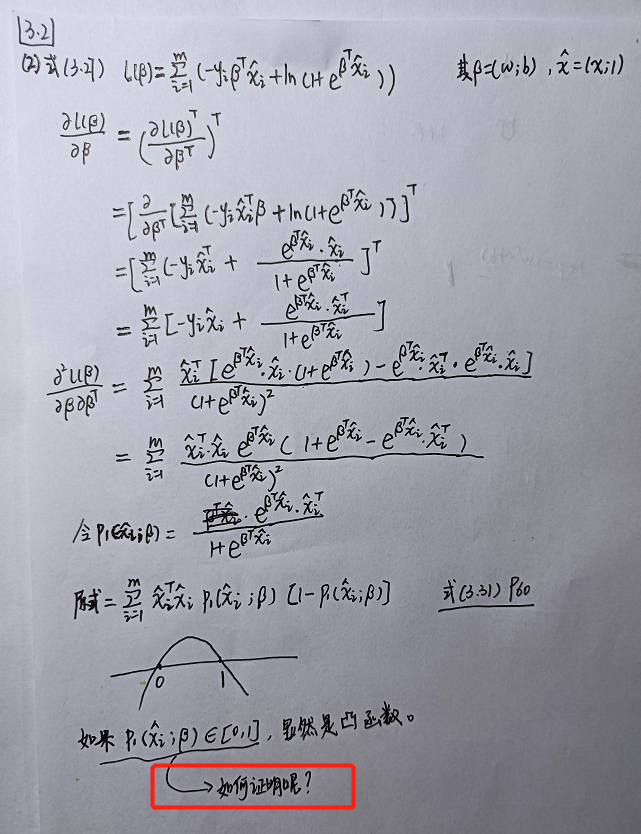 3.2
(2) 式(3.27) l(β)=∑_{i=1}^{m}(-y_iβ^T x̂_i+ln(1+e^{β^T x̂_i})) 其β=(w;b), x̂=(x;1)
∂l(β)/∂β = (∂l(β)^T/∂β^T)^T
=[∂/∂β^T[∑_{i=1}^{m}(-y_i x̂_i^Tβ+ln(1+e^{β^T x̂_i})]]^T
=[∑_{i=1}^{m}(-y_i x̂_i^T + e^{β^T x̂_i}·x̂_i/1+e^{β^T x̂_i}]^T
=∑_{i=1}^{m}[-y_i x̂_i + e^{β^T x̂_i}·x̂_i^T/1+e^{β^T x̂_i}]
∂²l(β)/∂β∂β^T = ∑_{i=1}^{m} x̂_i^T[e^{β^T x̂_i}·x̂_i·(1+e^{β^T x̂_i})-e^{β^T x̂_i}·x̂_i^T·e^{β^T x̂_i}·x̂_i]/(1+e^{β^T x̂_i})²
=∑_{i=1}^{m} x̂_i^T·x̂_i e^{β^T x̂_i}(1+e^{β^T x̂_i}-e^{β^T x̂_i}·x̂_i^T)/(1+e^{β^T x̂_i})²
令p₁(x̂_i;β)= e^{β^T x̂_i}·x̂_i^T/1+e^{β^T x̂_i}
原式=∑_{i=1}^{m} x̂_i^T x̂_i p₁(x̂_i;β)[1-p₁(x̂_i;β)] 式(3.31) P60
0 1
如果p₁(x̂_i;β)∈[0,1],显然是凸函数。
→如何证明呢?